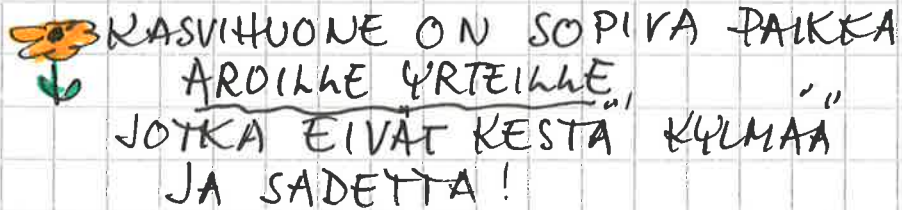 KASVIHUONE ON SOPIVA PAIKKA
AROILLE YRTEILLE,
JOTKA EIVÄT KESTÄ KYLMÄÄ
JA SADETTA!